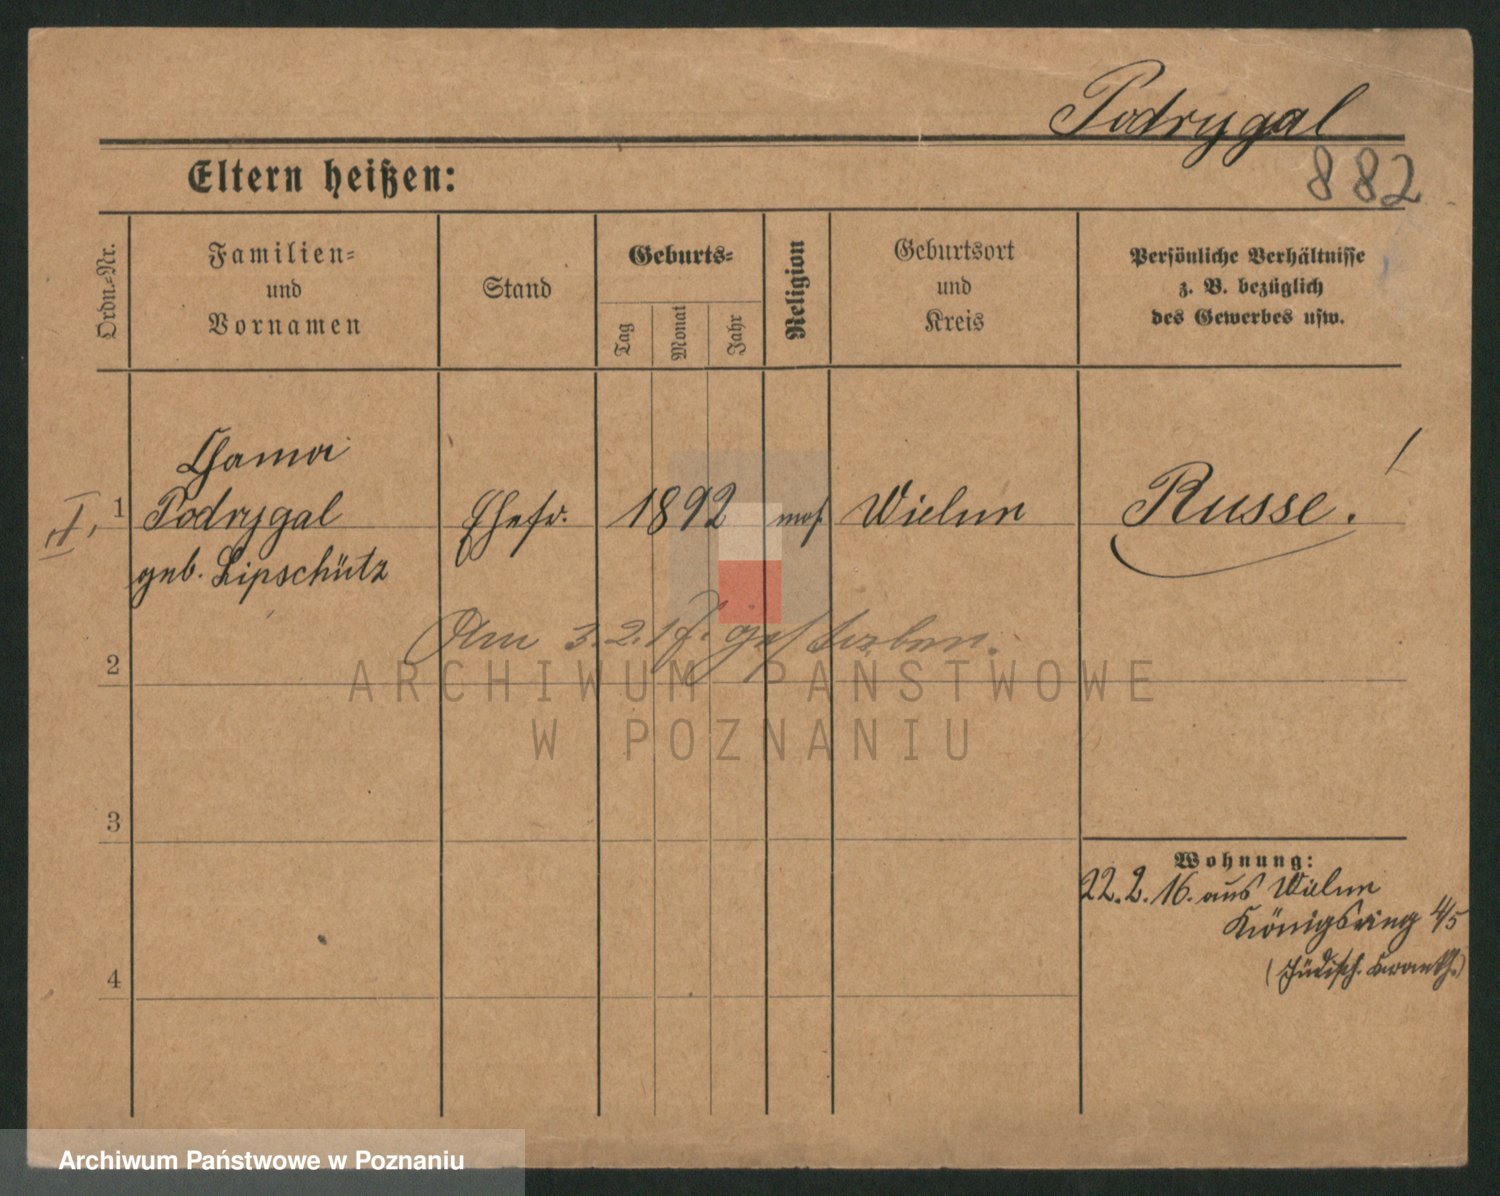 Podrygal
882
Eltern heißen:
Ordn.-Nr.
Familien-
und
Vornamen
Stand
Geburts-
Tag
Monat
Jahr
Religion
Geburtsort
und
Kreis
Persönliche Verhältnisse
z. B. bezüglich
des Gewerbes usw.
Chama
II, 1 Podrygal Ehefr. 1892 mos. Wielun Russe!
geb. Lipschütz
Am 3.2.17. gestorben.
2
ARCHIWUM PAŃSTWOWE
W POZNANIU
3
Wohnung:
22.2.16. aus Wielun
Königsring 4/5
(Jüdisch. Krankh.)
4
Archiwum Państwowe w Poznaniu